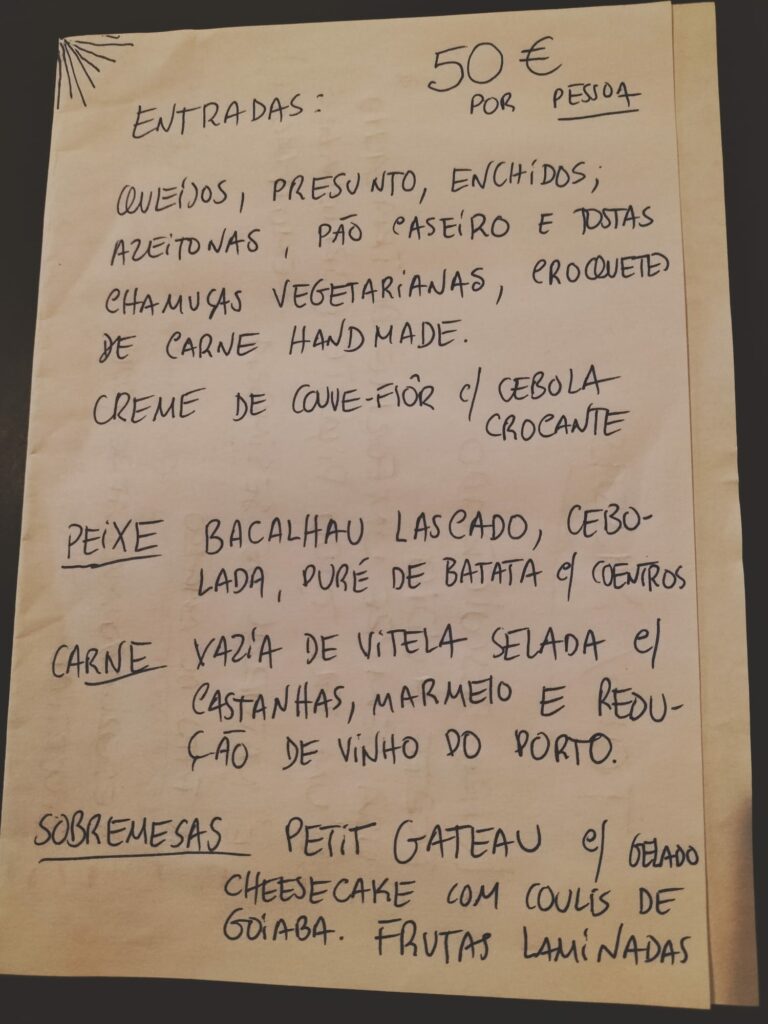 50 €
POR PESSOA
ENTRADAS:
QUEIJOS, PRESUNTO, ENCHIDOS,
AZEITONAS, PÃO CASEIRO E TOSTAS
CHAMUÇAS VEGETARIANAS, CROQUETES
DE CARNE HANDMADE.
CREME DE COUVE-FLÔR c/ CEBOLA
CROCANTE
PEIXE BACALHAU LASCADO, CEBO-
LADA, PURÉ DE BATATA c/ COENTROS
CARNE VAZIA DE VITELA SELADA c/
CASTANHAS, MARMELO E REDU-
ÇÃO DE VINHO DO PORTO.
SOBREMESAS PETIT GATEAU c/ GELADO
CHEESECAKE COM COULIS DE
GOIABA. FRUTAS LAMINADAS